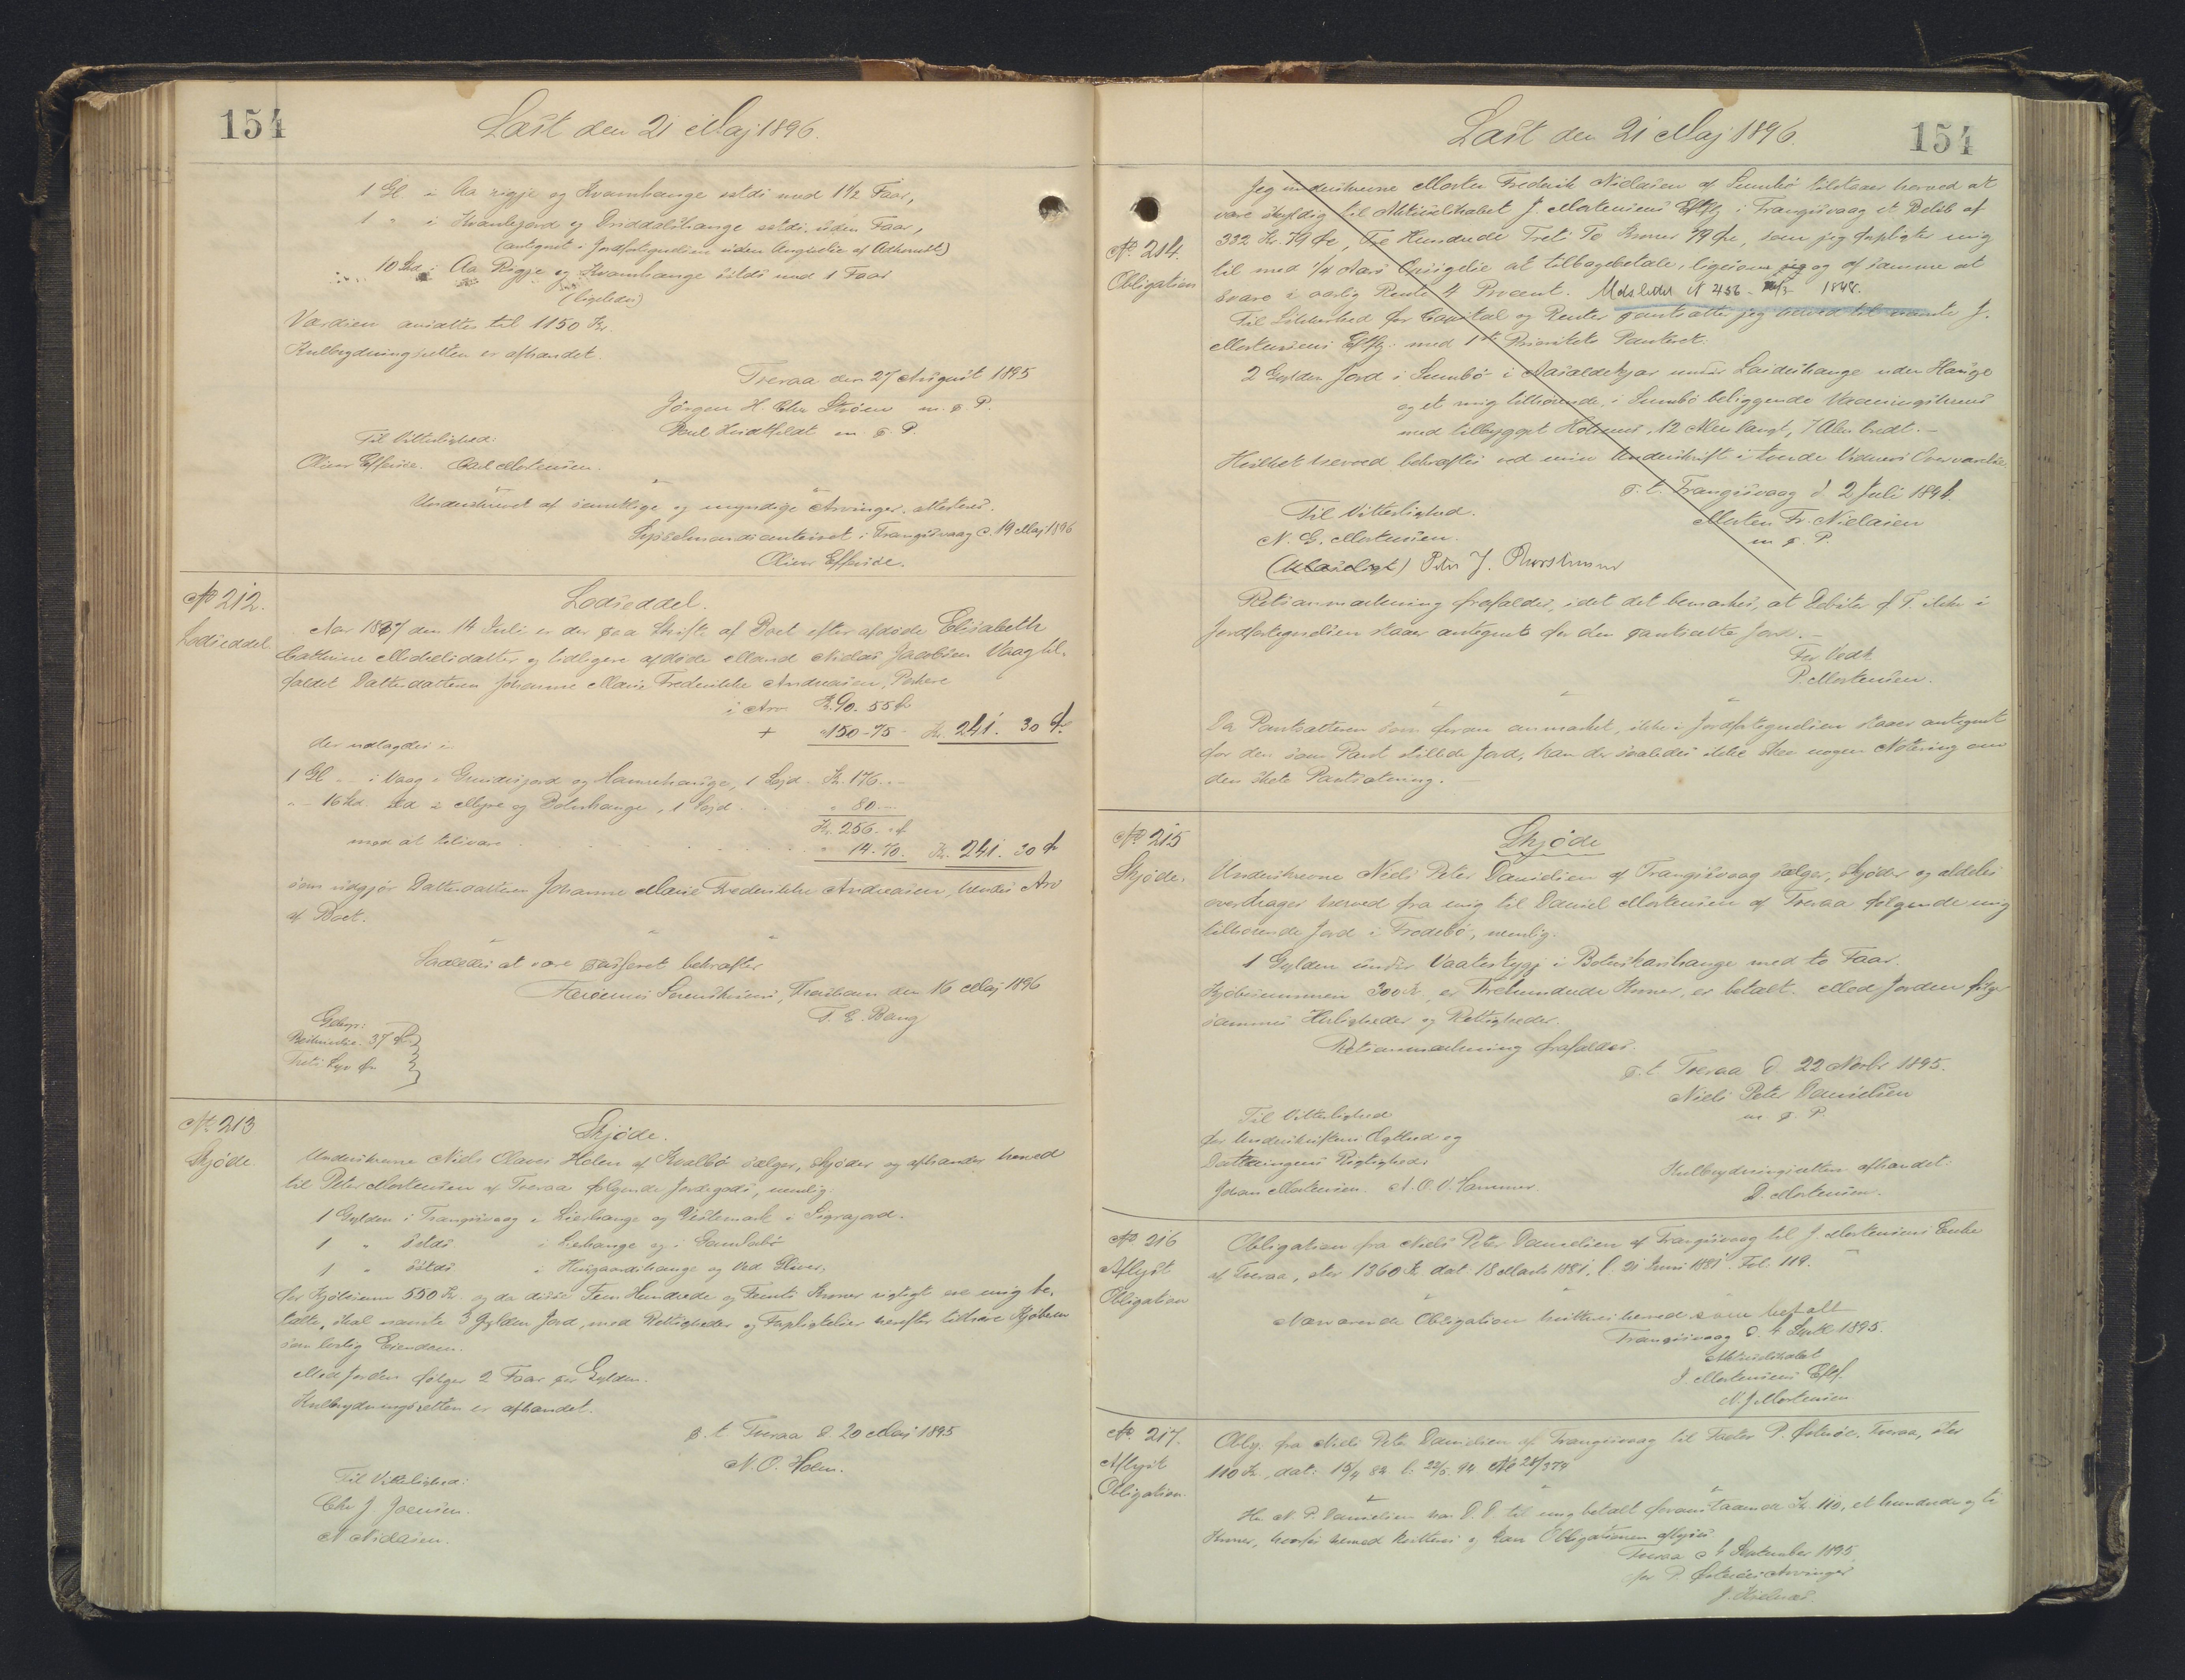 154
Læst den 21 Maj 1896.
1 Gl i Aa rigje og Kvamhauge østdi med 1 1/2 Faar,
1 " i Kvanlejord og Driddalshauge østdi uden Faar,
(antegnet i Jordfortegnelsen uden Angivelse af Adkomst)
10 Skd i Aa Rigje og Kvamhauge østdi med 1 Faar
(ligeledes)
Værdien ansættes til 1150 Kr.
Kulbrydningsretten er afhandet.
Tveraa den 27 August 1895
Jörgen H. Chr Ströem m. p. P.
Poul Heidtfeldt m. p. P.
Til Vitterlighed:
Oliver Effersøe. Carl Mortensen.
Underskrevet af samtlige og myndige Arvinger, attesteres.
Sysselmandscontoiret i Trangisvaag d. 19 Maj 1896
Oliver Effersøe.
No 212.
Lodseddel
Lodseddel.
Aar 1887 den 14 Juli er der paa Skifte af Boet efter afdøde Elisabeth
Cathrine Michelsdatter og tidligere afdøde Mand Niclas Jacobsen Vaag til-
faldet Datterdatteren Johanne Marie Frederikke Andreasen, Porkere
i Arv Kr. 90. 55 Ø
+ 150 - 75 Kr. 241. 30 Ø.
der udlagdes i:
1 Gl - i Vaag i Gundersjord og Hamrehauge, 1 Lejd - Kr. 176. -
" - 16 Skd sed i Myre og Bolushauge, 1 Lejd. " 80 -
Kr. 256. " Ø
mod at tilsvare " 14. 70. Kr. 241. 30 Ø
som udgjör Datterdatteren Johanne Marie Frederikke Andreasen, hendes Arv
af Boet.
Saaledes at være passeret bekræfter
Færöernes Sorenskriveri, Thorshavn den 16 Maj 1896
T. E. Bang
Gebyr:
Beskrivelse. 37 Ø
Treti Syv Øre
No 213
Skjøde
Skjøde.
Underskrevne Niels Olaves Holm af Kvalbø sælger, skjøder og afhænder herved
til Peter Mortensen af Tveraa følgende Jordegods, nemlig:
1 Gylden i Trangisvaag i Lierhauge og Vestemark i Sigrajord.
1 " östdi i Lierhauge og i Gamlabø
1 " östdi i Heygaardshauge og Ved Gliver,
for Kjøbesum 550 Kr. og da disse Fem Hundrede og Femti Kroner rigtigt ere mig be-
talte, skal nævnte 3 Gylden Jord, med Rettigheder og Forpligtelser herefter tilhøre Kjøberen
som lovlig Eiendom.
Med Jorden følger 2 Faar per Gylden.
Kulbrydningsretten er afhandet.
p. t. Tveraa d. 20 Maj 1895
N. O. Holm.
Til Vitterlighed:
Chr J. Joensen.
N Niclasen.
154
Læst den 21 Maj 1896.
No 214.
Obligation
Jeg underskrevne Morten Frederik Nielasen af Sumbø tilstaaer herved at
være skyldig til Aktieselskabet J. Mortensens Eftflg i Trangisvaag et Beløb af
332 Kr. 79 Øre, Tre Hundrede Treti To Kroner 79 Øre, som jeg forpligter mig
til med 1/4 Aars Opsigelse at tilbagebetale, ligesom jeg og af samme at
svare i aarlig Rente 4 Procent.
Til Sikkerhed for Capital og Renter pantsætter jeg herved til nævnte J.
Mortensens Eftflg: med 1ste Prioritets Panteret:
2 Gylden Jord i Sumbø i Aasaldekjar under Laideshauge uden Hauge
og et mig tilhørende, i Sumbø beliggende Vaaningshuus
med tilbygget Hølsuus, 12 Alen langt, 7 Alen bredt. -
Hvilket herved bekræftes ved min Underskrift i tvende Vidners Overværelse
p. t. Trangisvaag d. 2 Juli 1894.
Morten Fr. Nielasen
m. p. P.
Til Vitterlighed.
N. G. Mortensen.
(Ulæseligt) Peter J. Thorsteinsen
Retsanmærkning frafaldes, idet det bemærkes, at Debitor p. T. ikke i
Jordfortegnelsen staar antegnet for den pantsatte Jord. -
For Vedk
P. Mortensen.
Da Pantsætteren som foran anmærket, ikke i Jordfortegnelsen staaer antegnet
for den som Pant stillede Jord, kan der saaledes ikke skee nogen Notering om
den skete Pantsætning.
No 215
Skjøde.
Skjøde
Underskrevne Niels Peter Danielsen af Trangisvaag sælger, skjøder og aldeles
overdrager herved fra mig til Daniel Mortensen af Tveraa følgende mig
tilhørende Jord i Frodebø, nemlig:
1 Gylden under Vaatestygj i Botnskarhauge med to Faar.
Kjøbesummen 300 Kr, er Trehundrede Kroner, er betalt. Med Jorden følger
sammes Herligheder og Rettigheder.
Retsanmærkning frafaldes.
p. t. Tveraa d. 22 Novbr 1895.
Niels Peter Danielsen
m. p. P.
Til Vitterlighed
for Underskriftens Ægthed og
Dateringens Rigtighed:
Johan Mortensen. A. O. V. Hammer.
Kulbrydningsretten afhandet.
D. Mortensen.
No 216
Aflyst
Obligation
Obligation fra Niels Peter Danielsen af Trangisvaag til J. Mortensens Enke
af Tveraa, stor 1360 Kr dat 18 Marts 1881, l. 21 Juni 1881. Fol. 119.
Nærværende Obligation kvitteres herved som betalt
Trangisvaag d. 4 Septr 1895.
Aktieselskabet
J. Mortensens Eftf.
N. J. Mortensen
No 217.
Aflyst
Obligation.
Oblg. fra Niels Peter Danielsen af Trangisvaag til Factor P. Østerøe, Tveraa, stor
110 Kr., dat: 15/4 82 l: 22/5. 94 No 28/374
Hr. N. P. Danielsen har D. D. til mig betalt foranstaaende Kr. 110, et hundrede og ti
Kroner, hvorfor herved kvitteres og kan Obligationen aflyses.
Tveraa d 4 September 1895
for P. Østerøes Arvinger